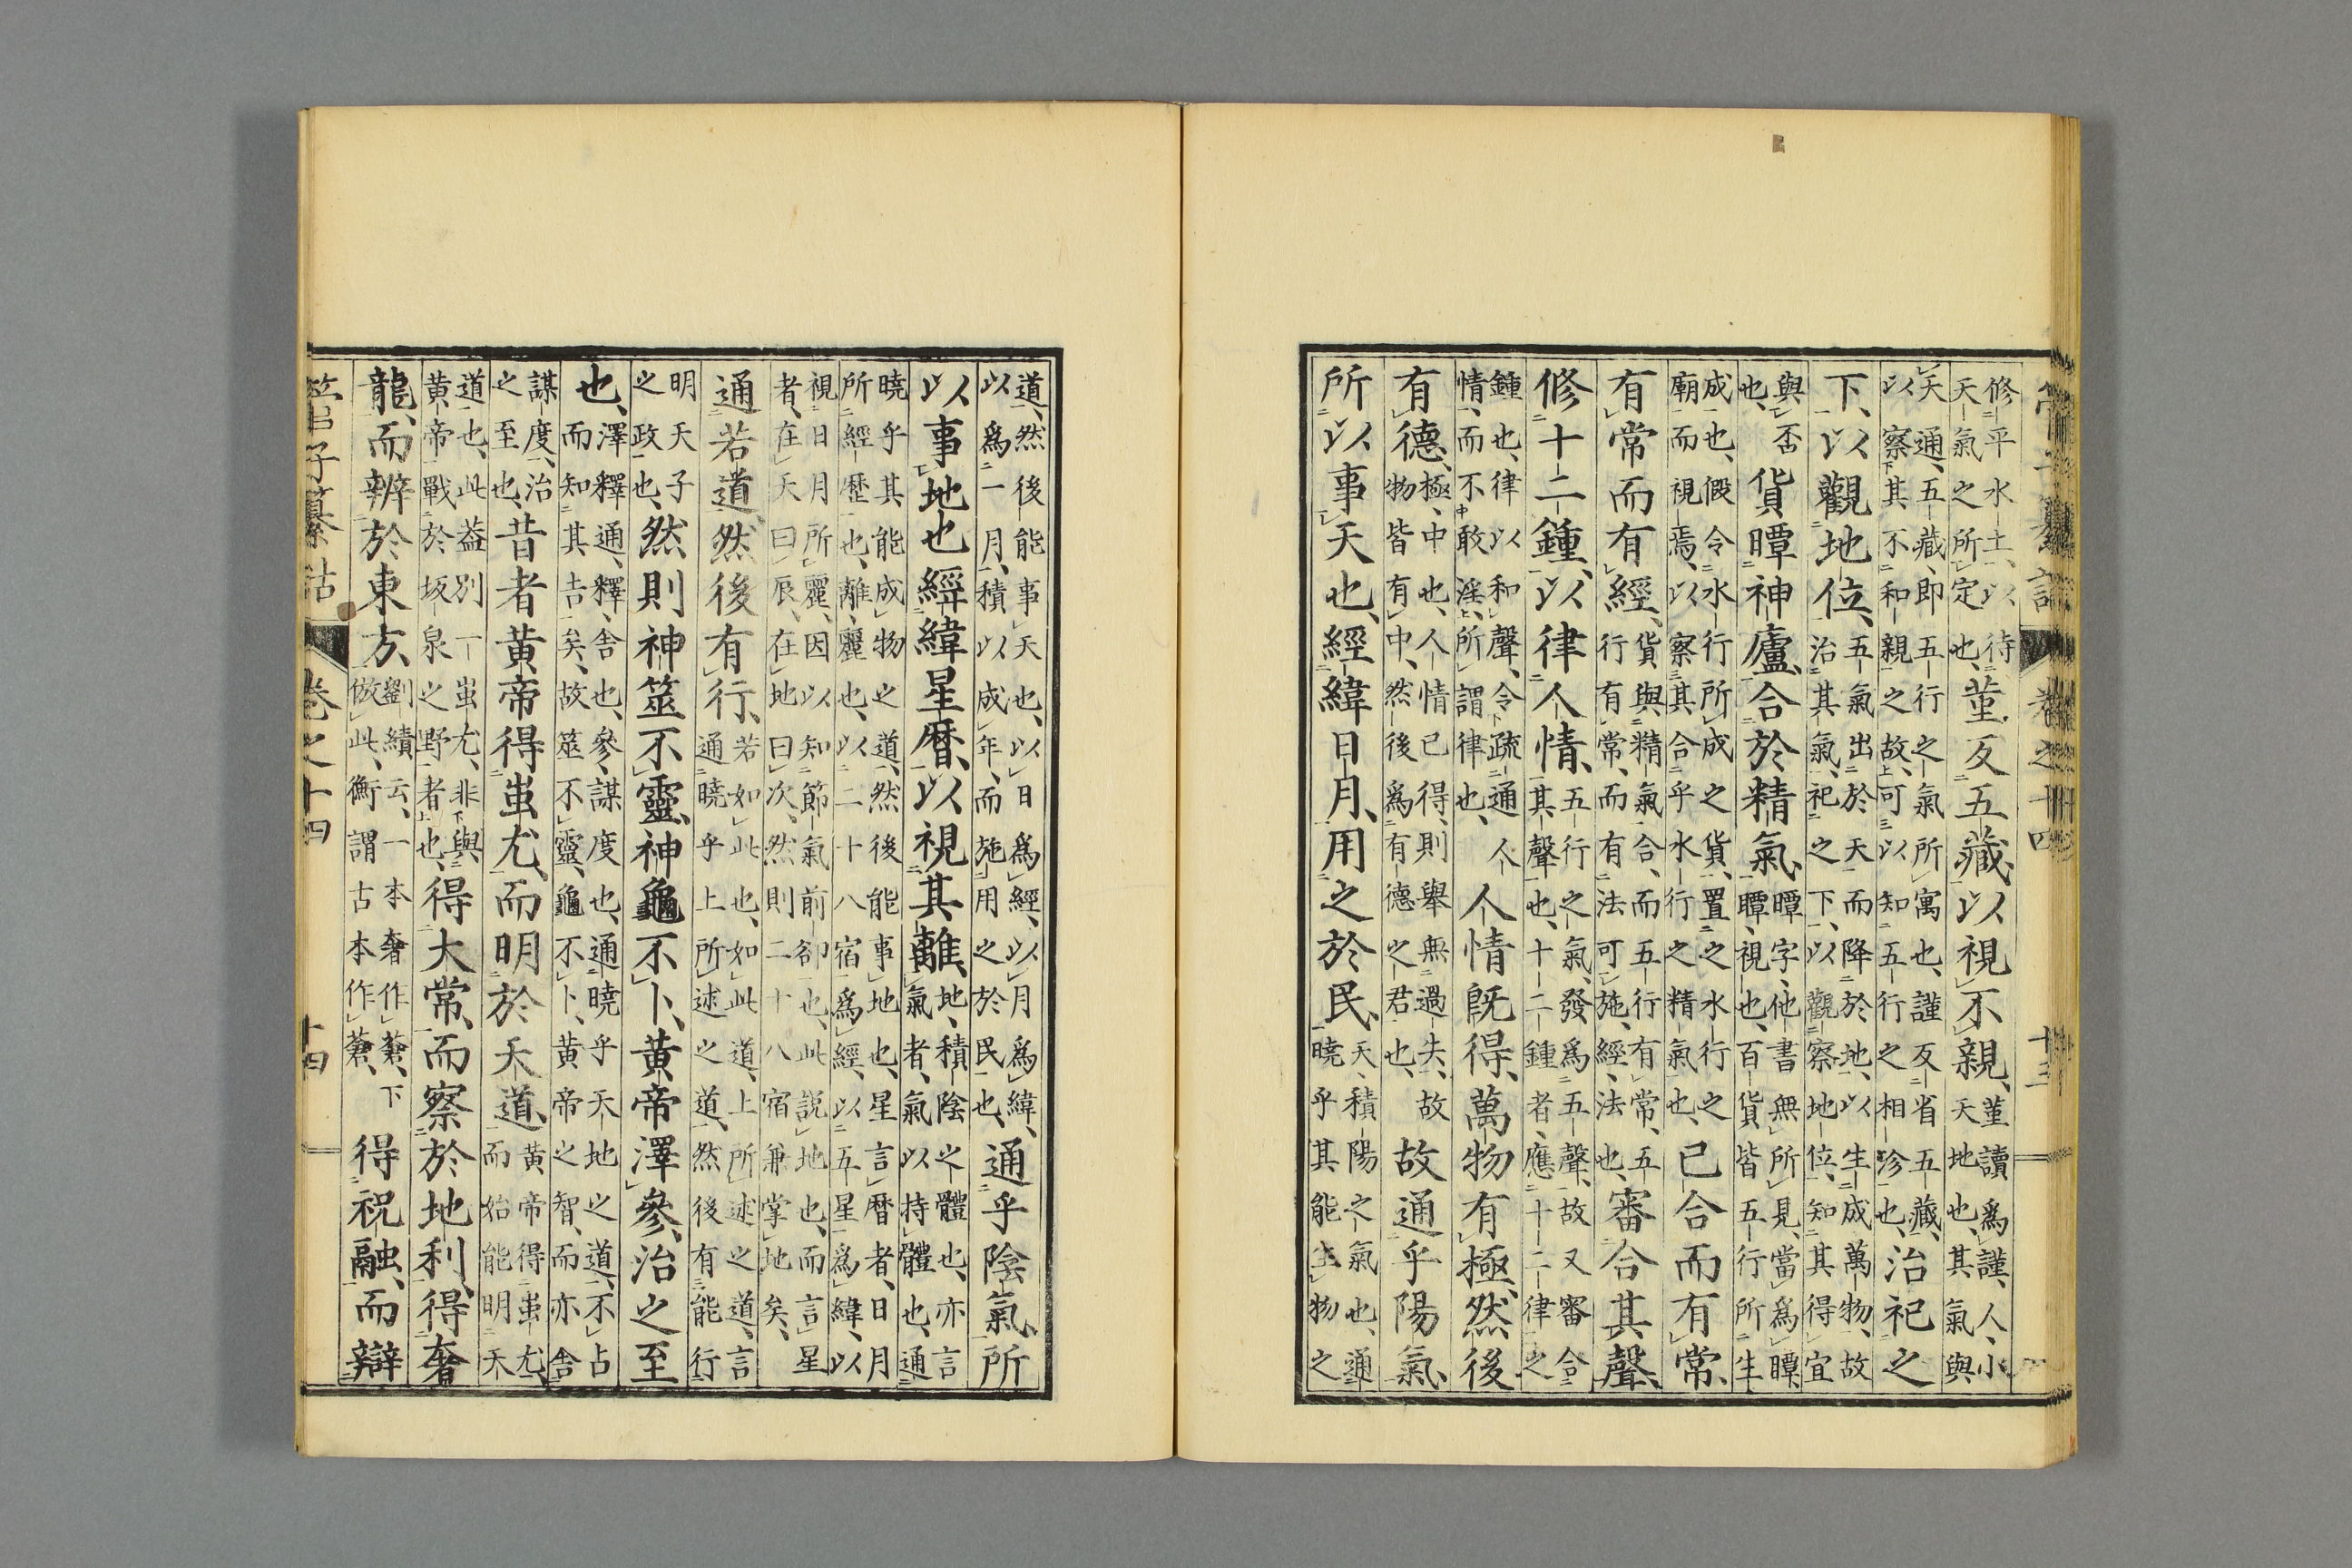 管子纂詁 卷之十四 十三
修平水土、以待天氣之所定也、菫反五藏、以視不親、菫讀爲謹、人、小天地也、其氣與
天通、五藏、即五行之氣所寓也、謹反省五藏、以察其不和親之故、可以知五行之相沴也、治祀之
下、以觀地位、五氣出於天而降於地、以生成萬物、故治其氣、祀之下、以觀察地位、知其得宜
與否也、貨曋神廬、合於精氣、曋字、他書無所見、當爲瞫瞫、視也、百貨皆五行所生
成也、假令水行所成之貨、置之水行之廟而視焉、以察其合乎水行之精氣也、已合而有常、
有常而有經、貨與精氣合、而五行有常、五行有常、而有法可施、經、法也、審合其聲、
修十二鍾、以律人情、五行之氣、發爲五聲、故又審合其聲也、十二鍾者、應十二律之
鍾也、律以和聲、令疏通人情、而不敢淫、所謂律也、人情既得、萬物有極、然後
有德、極、中也、人情已得、則舉無過失、故物皆有中、然後爲有德之君也、故通乎陽氣、
所以事天也、經緯日月、用之於民、天、積陽之氣也、通曉乎其能生物之
道、然後能事天也、以日爲經、以月爲緯、以爲一月、積以成年、而施用之於民也、通乎陰氣、所
以事地也、經緯星曆、以視其離、地、積陰之體也、亦言氣者、氣以持體也、通
曉乎其能成物之道、然後能事地也、星言曆者、日月所經歷也、離、麗也、以二十八宿爲經、以五星爲緯、以
視日月所麗、因以知節氣前卻也、此説地也、而言星者、在天曰辰、在地曰次、然則二十八宿兼掌地矣、
通若道、然後有行、若如此也、如此道、上所述之道、言通曉乎上所述之道、然後有能行
明天子之政也、然則神筮不靈、神龜不卜、黃帝澤參、治之至
也、澤釋通、釋、舍也、參、謀度也、通曉乎天地之道、不占而知其吉矣、故筮不靈、龜不卜、黃帝之智、而亦舍
謀度、治之至也、昔者黃帝得蚩尤、而明於天道、黃帝得蚩尤、而始能明天
道也、此蓋別一蚩尤、非與黃帝戰於坂泉之野者也、得大常、而察於地利、得奢
龍、而辨於東方、劉績云、一本奢作蒼、下倣此、衡謂古本作蒼、得祝融、而辯
管子纂詁 卷之十四 十四